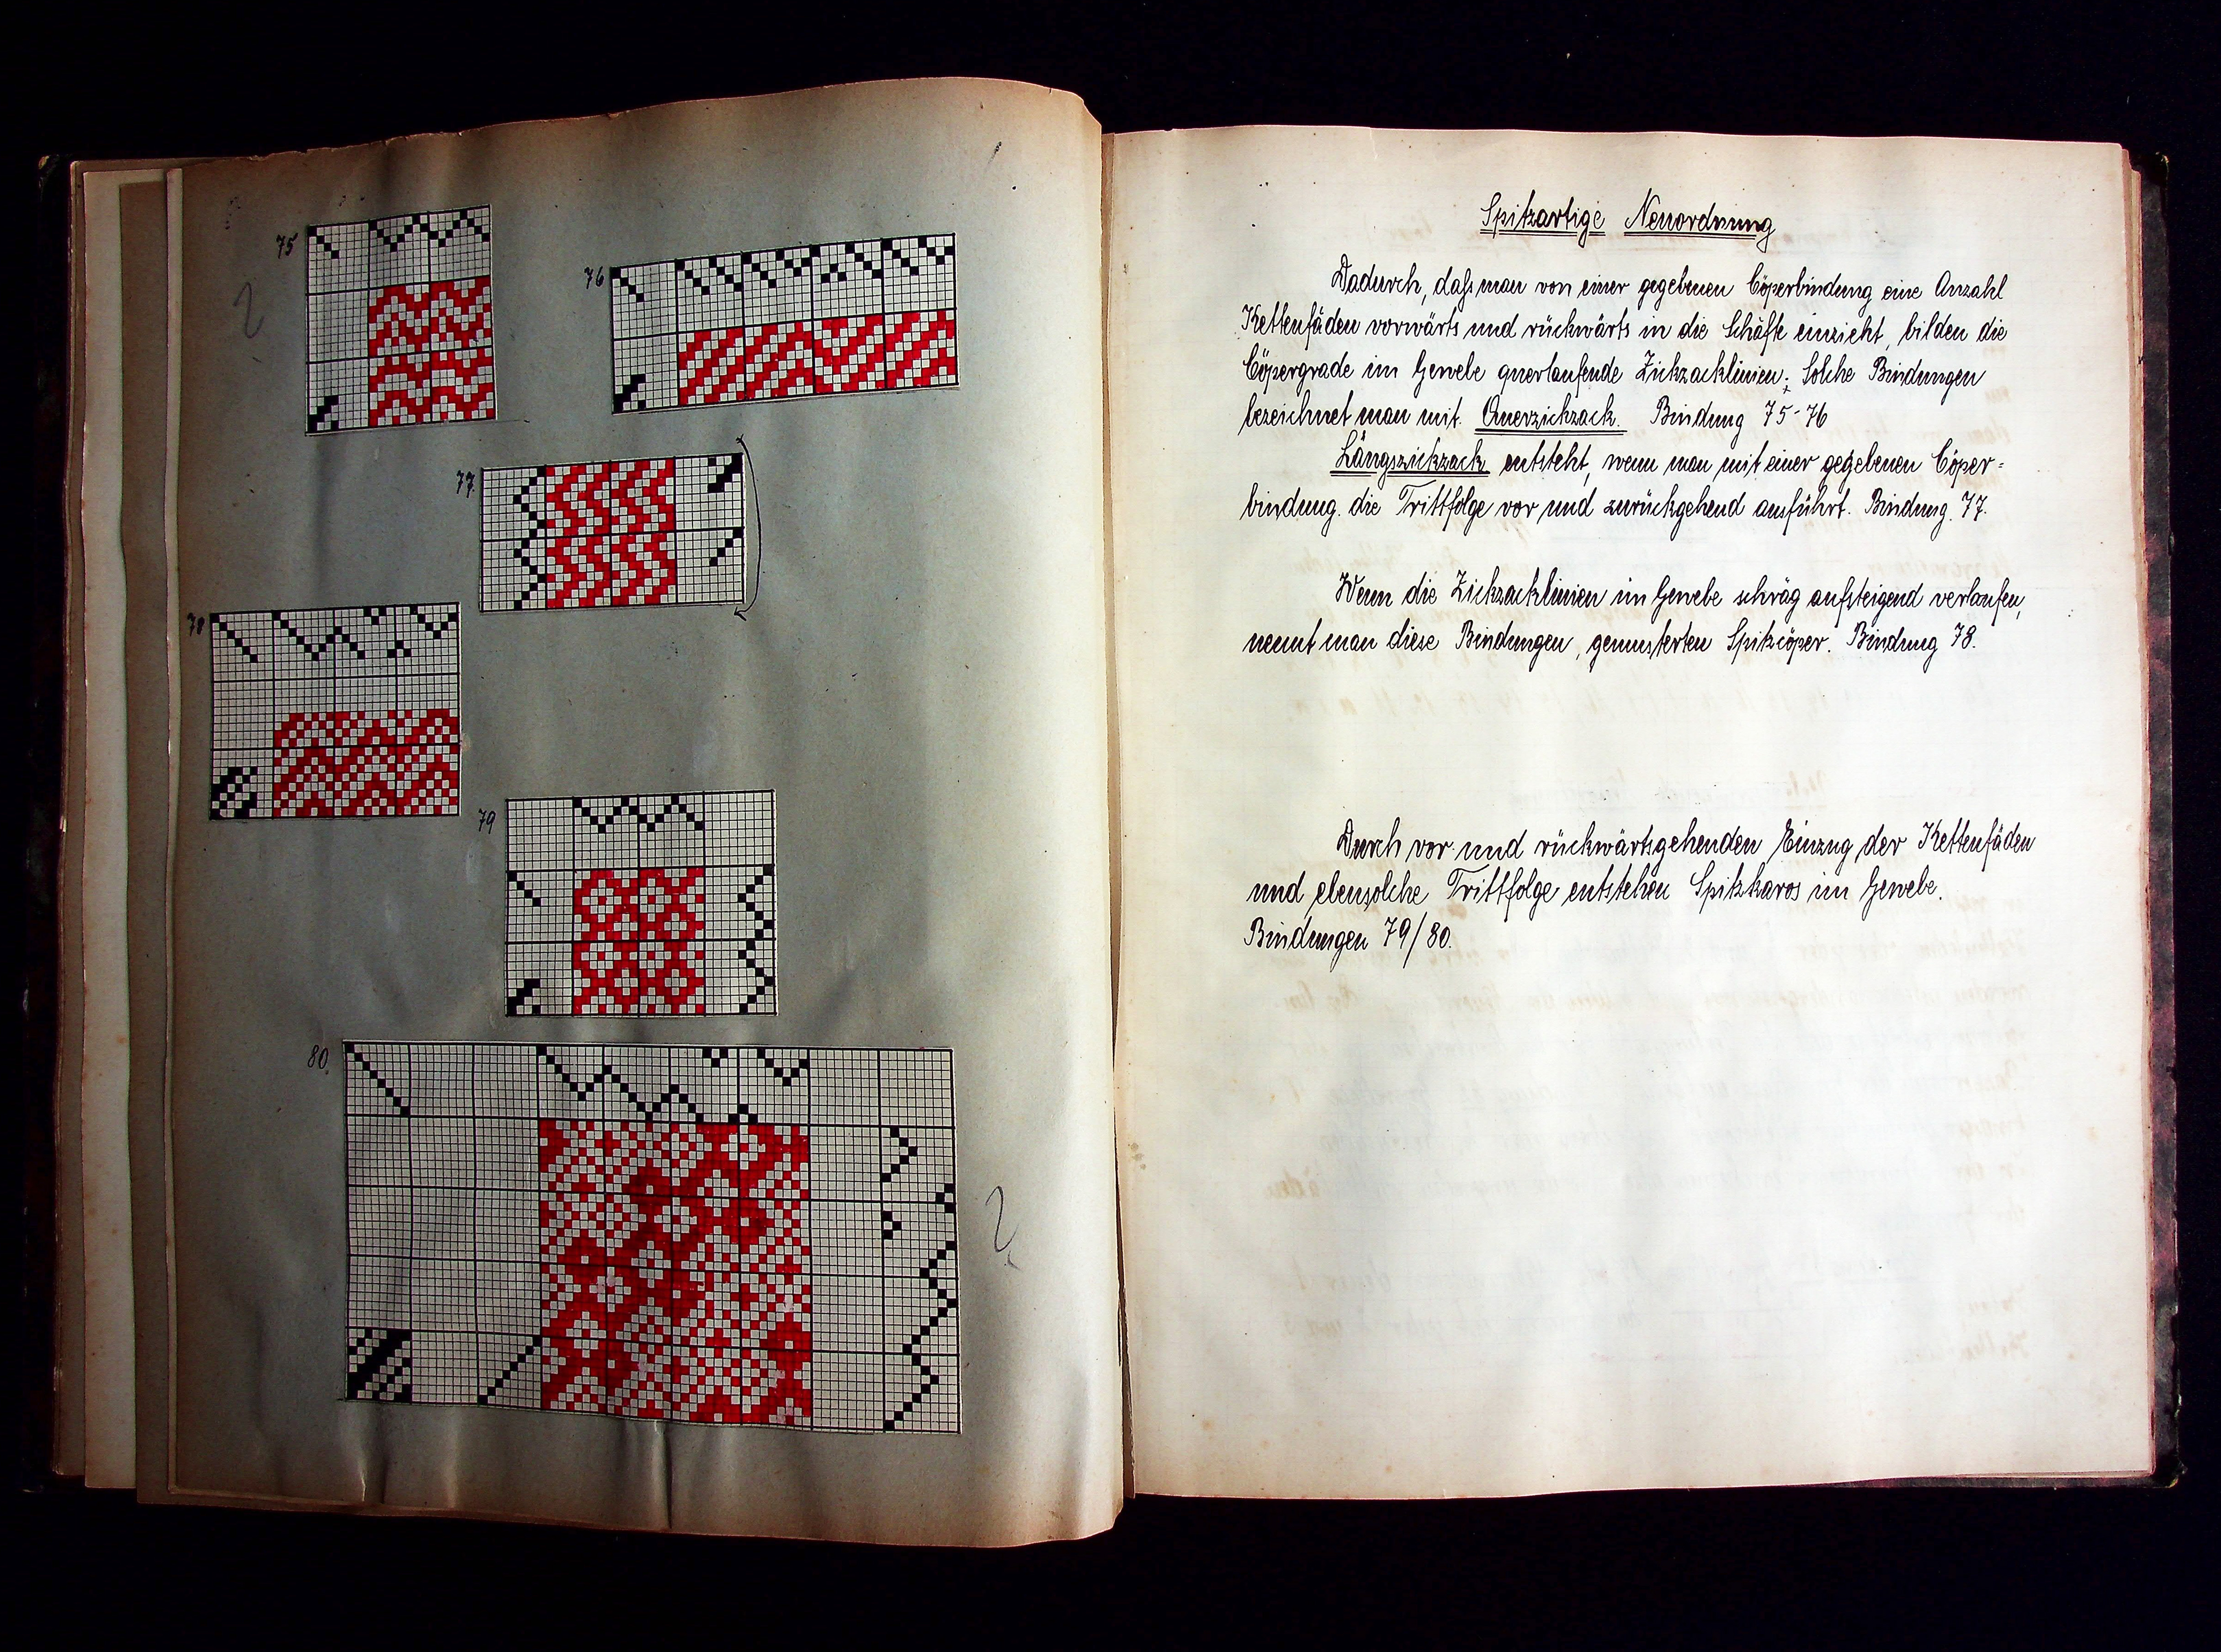 75
76
77.
78
79
80.
Spitzartige Neuordnung
Dadurch, daß man von einer gegebenen Cöperbindung eine Anzahl
Kettenfäden vorwärts und rückwärts in die Schäfte einzieht, bilden die
Cöpergrade im Gewebe querlaufende Zickzacklinien; Solche Bindungen
bezeichnet man mit Querzickzack. Bindung 75-76
Längszickzack entsteht, wenn man mit einer gegebenen Cöper=
bindung die Trittfolge vor und zurückgehend ausführt. Bindung 77.
Wenn die Zickzacklinien im Gewebe schräg aufsteigend verlaufen,
nennt man diese Bindungen, gemusterten Spitzcöper. Bindung 78.
Durch vor und rückwärtsgehenden Einzug der Kettenfäden
und ebensolche Trittfolge entstehen Spitzkaros im Gewebe.
Bindungen 79/80.